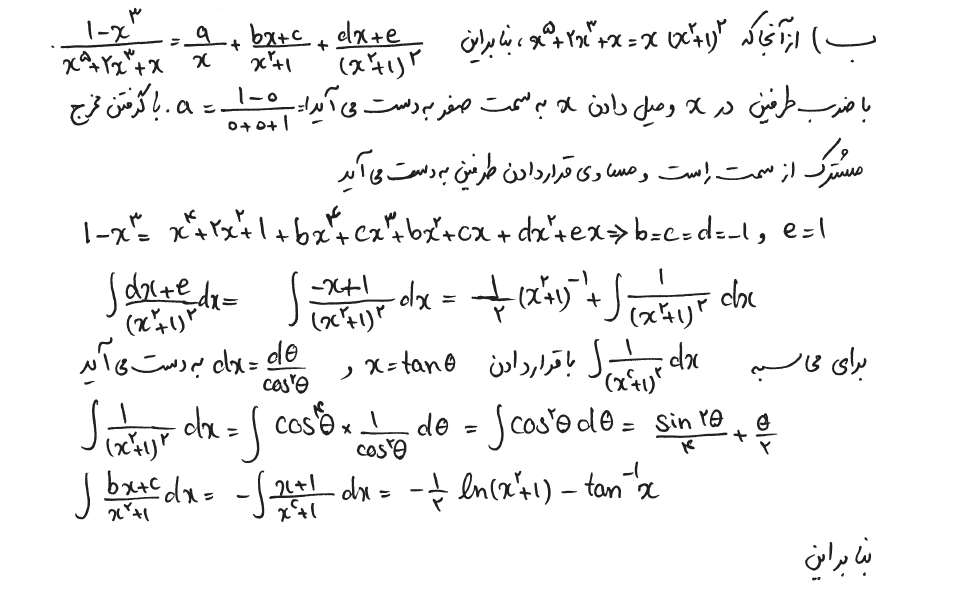 ب) ازآنجاکه x^۵+۲x^۳+x = x(x^۲+1)^۲ ، بنابراین (1-x^۳)/(x^۵+۲x^۳+x) = a/x + (bx+c)/(x^۲+1) + (dx+e)/(x^۲+1)^۲ .
با ضرب طرفین در x و میل دادن x به سمت صفر به دست می آید: a = (1-0)/(0+0+1) = 1 . با گرفتن مخرج
مشترک از سمت راست و مساوی قراردادن طرفین به دست می آید
1-x^۳ = x^۴+۲x^۲+1+bx^۴+cx^۳+bx^۲+cx+dx^۲+ex ⇒ b=c=d=-1 , e=1
∫ (dx+e)/(x^۲+1)^۲ dx = ∫ (-x+1)/(x^۲+1)^۲ dx = 1/۲ (x^۲+1)^-1 + ∫ 1/(x^۲+1)^۲ dx
برای محاسبه ∫ 1/(x^۲+1)^۲ dx با قراردادن x = tanθ و dx = dθ/cos^۲θ به دست می آید
∫ 1/(x^۲+1)^۲ dx = ∫ cos^۴θ × 1/cos^۲θ dθ = ∫ cos^۲θ dθ = sin ۲θ/۴ + θ/۲
∫ (bx+c)/(x^۲+1) dx = -∫ (x+1)/(x^۲+1) dx = -1/۲ ln(x^۲+1) - tan^-1 x
بنابراین